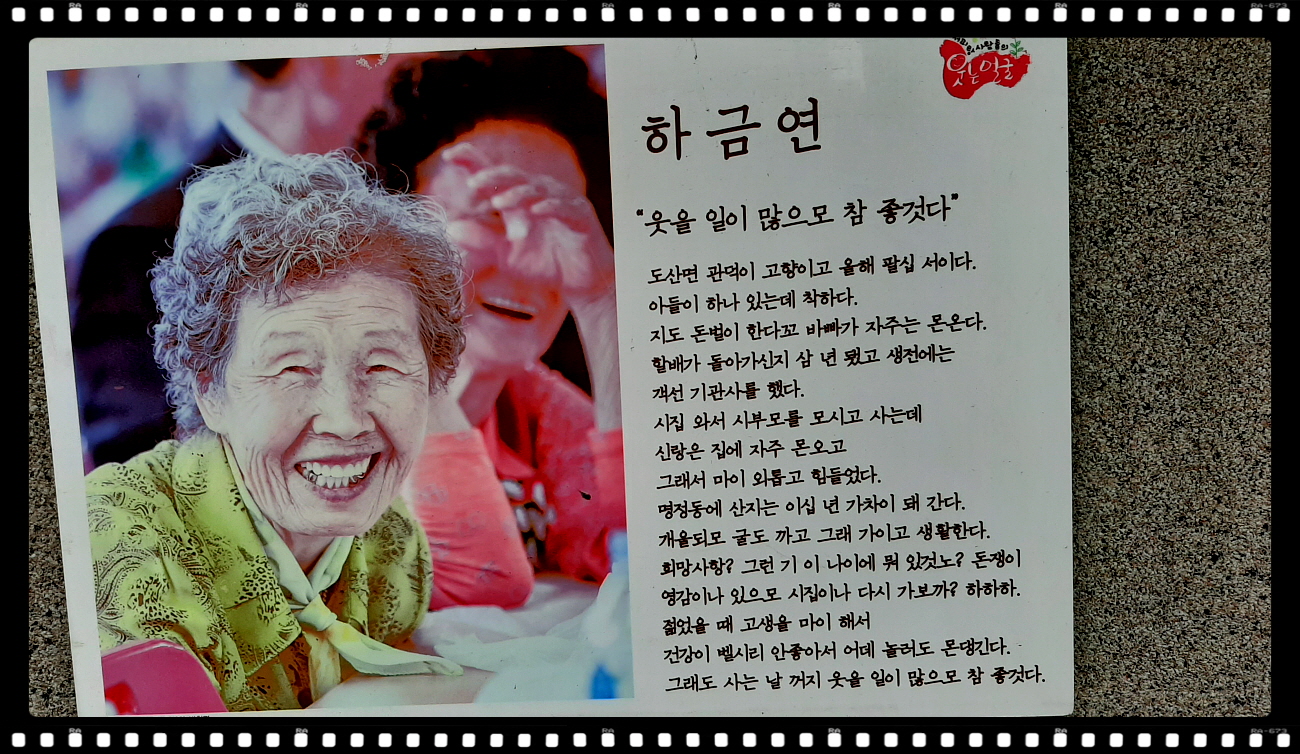 웃는얼굴
하금연
"웃을 일이 많으모 참 좋겟다"
도산면 관덕이 고향이고 올해 팔십 서이다.
아들이 하나 있는데 착하다.
지도 돈벌이 한다꼬 바빠가 자주는 몬온다.
할배가 돌아가신지 삼 년 됐고 생전에는
객선 기관사를 했다.
시집 와서 시부모를 모시고 사는데
신랑은 집에 자주 몬오고
그래서 마이 외롭고 힘들었다.
명정동에 산지는 이십 년 가차이 돼 간다.
개울되모 굴도 까고 그래 가이고 생활한다.
희망사항? 그런 기 이 나이에 뭐 있것노? 돈쟁이
영감이나 있으모 시집이나 다시 가보까? 하하하.
젊었을 때 고생을 마이 해서
건강이 벨시리 안좋아서 어데 놀러도 몬댕긴다.
그래도 사는 날 꺼지 웃을 일이 많으모 참 좋것다.